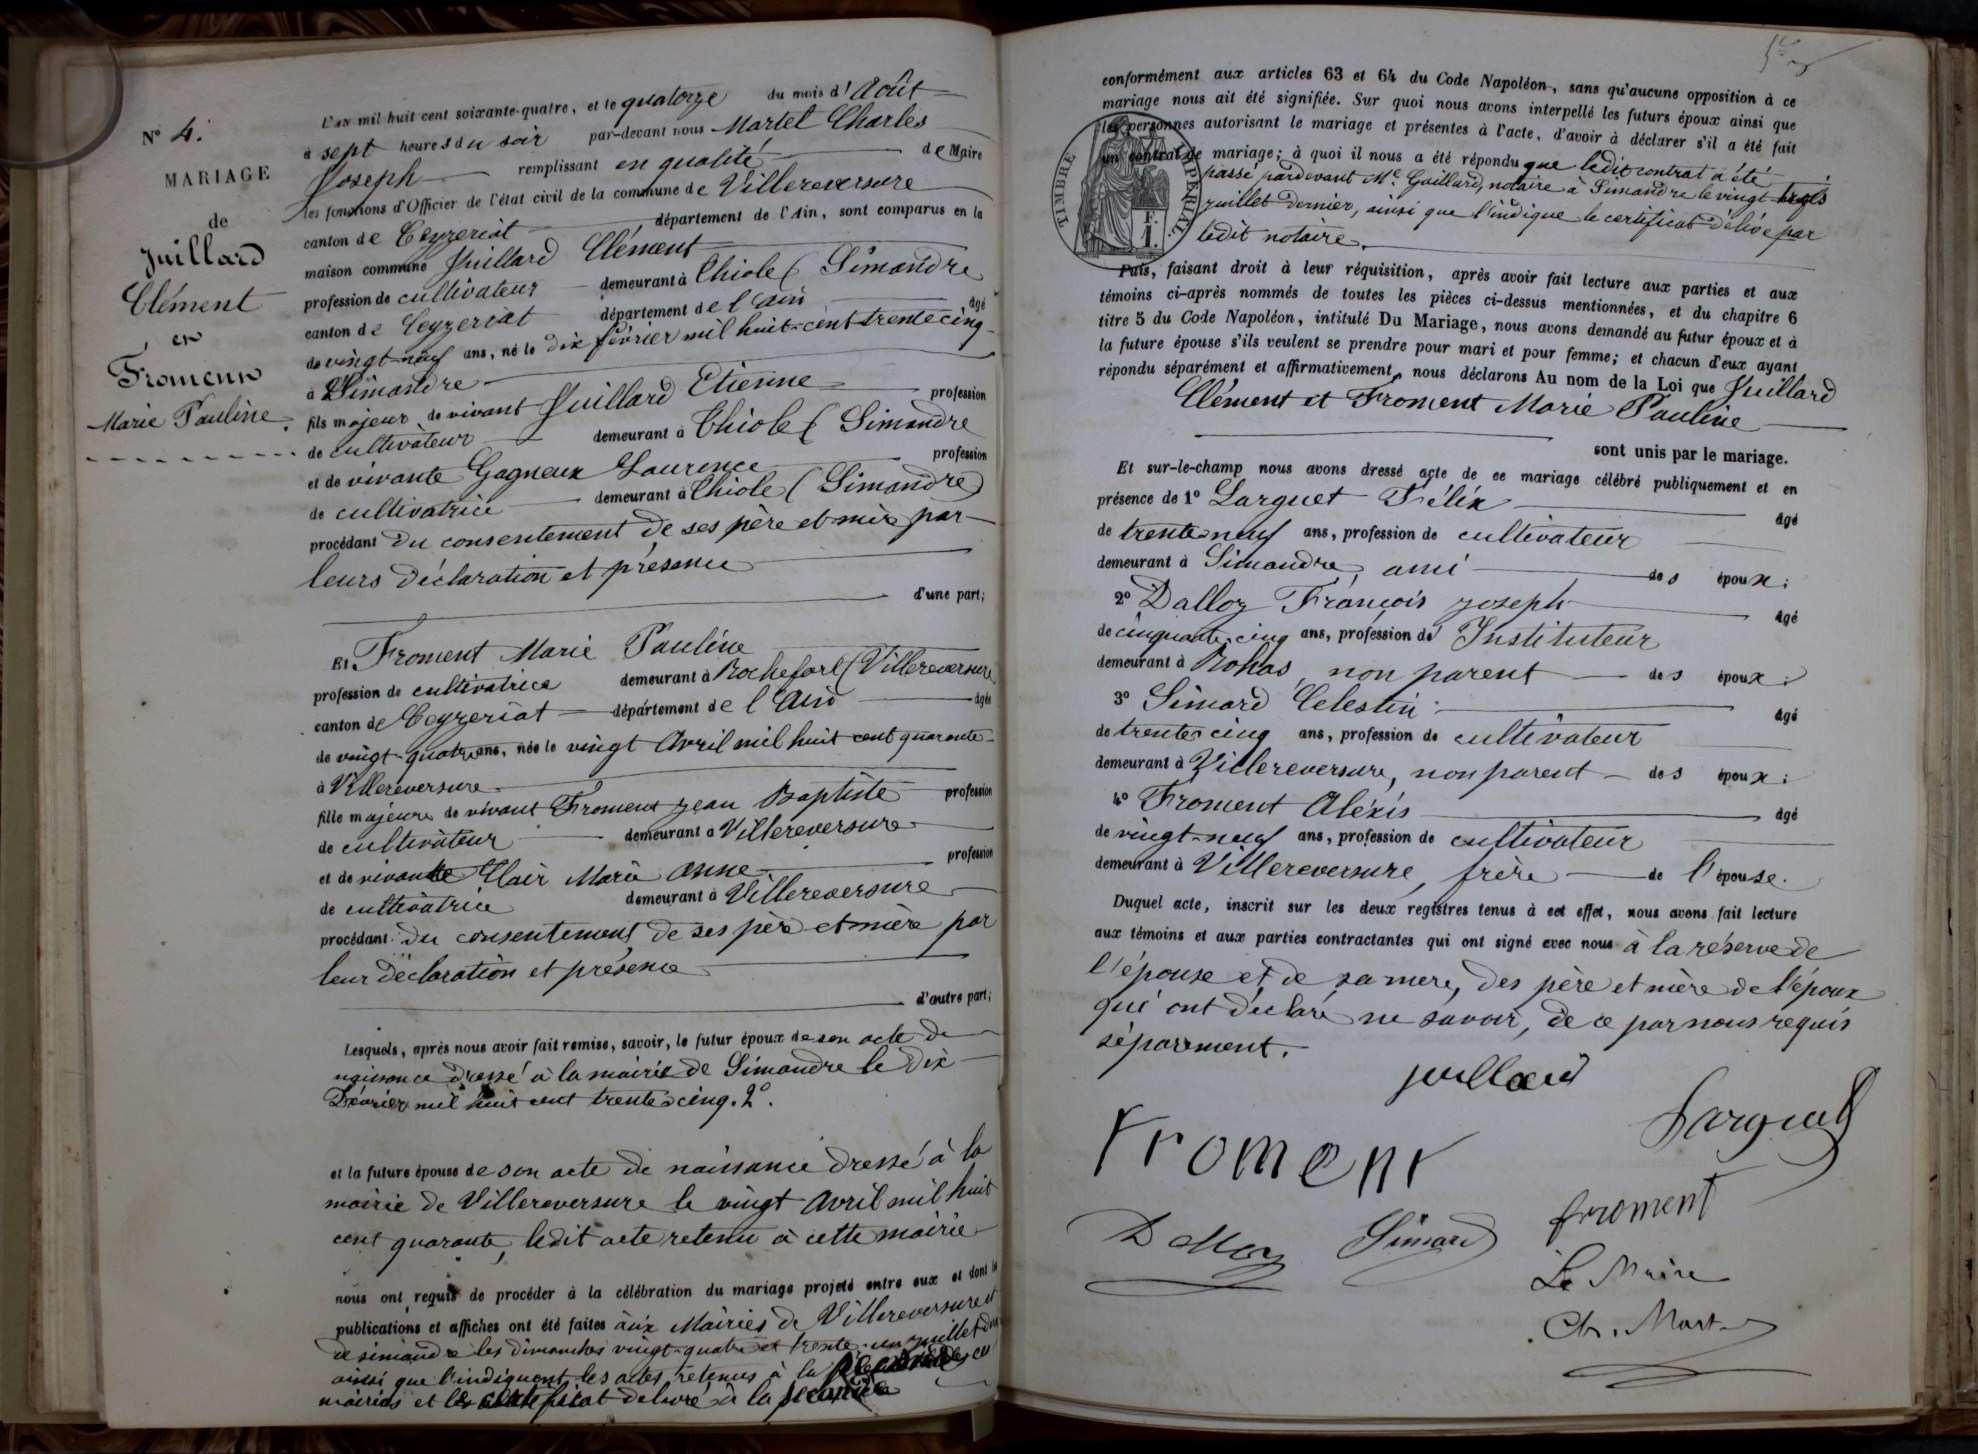 N° 4.
MARIAGE
de
Juillard
Clément
et
Froment
Marie Pauline
L'an mil huit cent soixante-quatre, et le quatorze du mois d'Août
à sept heures du soir par-devant nous Martel Charles
Joseph remplissant en qualité de Maire
les fonctions d'Officier de l'état civil de la commune de Villereversure
canton de Ceyzeriat département de l'Ain, sont comparus en la
maison commune Juillard Clément
profession de cultivateur demeurant à Chiole (Simandre
canton de Ceyzeriat département de l'ain âgé
de vingt-neuf ans, né le dix février mil huit-cent trente cinq
à Simandre
fils majeur de vivant Juillard Etienne profession
de cultivateur demeurant à Chiole (Simandre
et de vivante Gagneux Laurence profession
de cultivatrice demeurant à Chiole (Simandre)
procédant du consentement de ses père et mère par
leurs déclaration et présence
d'une part;
Et Froment Marie Pauline
profession de cultivatrice demeurant à Rochefort (Villereversure
canton de Ceyzeriat département de l'Ain âgée
de vingt-quatre ans, née le vingt Avril mil huit cent quarante
à Villereversure
fille majeure de vivant Froment Jean Baptiste profession
de cultivateur demeurant à Villereversure
et de vivante Clair Marie Anne profession
de cultivatrice demeurant à Villereversure
procédant du consentement de ses père et mère par
leur déclaration et présence
d'autre part;
Lesquels, après nous avoir fait remise, savoir, le futur époux de son acte de
naissance dressé à la mairie de Simandre le dix
Février mil huit cent trente cinq. 2°.
et la future épouse de son acte de naissance dressé à la
mairie de Villereversure le vingt avril mil huit
cent quarante, ledit acte retenu à cette mairie
nous ont requis de procéder à la célébration du mariage projeté entre eux et dont les
publications et affiches ont été faites aux Mairies de Villereversure et
de simandre les dimanches vingt-quatre et trente-un juillet
ainsi que l'indiquent les actes retenus à la
mairies et le certificat délivré à la
conformément aux articles 63 et 64 du Code Napoléon, sans qu'aucune opposition à ce
mariage nous ait été signifiée. Sur quoi nous avons interpellé les futurs époux ainsi que
les personnes autorisant le mariage et présentes à l'acte, d'avoir à déclarer s'il a été fait
un contrat de mariage; à quoi il nous a été répondu que ledit contrat a été
passé pardevant Me. Gaillard, notaire à Simandre le vingt trois
juillet dernier, ainsi que l'indique le certificat délivé par
ledit notaire.
TIMBRE IMPÉRIAL
F.
1.
Puis, faisant droit à leur réquisition, après avoir fait lecture aux parties et aux
témoins ci-après nommés de toutes les pièces ci-dessus mentionnées, et du chapitre 6
titre 5 du Code Napoléon, intitulé Du Mariage, nous avons demandé au futur époux et à
la future épouse s'ils veulent se prendre pour mari et pour femme; et chacun d'eux ayant
répondu séparément et affirmativement, nous déclarons Au nom de la Loi que Juillard
Clément et Froment Marie Pauline
sont unis par le mariage.
Et sur-le-champ nous avons dressé acte de ce mariage célébré publiquement et en
présence de 1° Larguet Félix âgé
de trente-neuf ans, profession de cultivateur
demeurant à Simandre, ami des époux;
2° Dalloz François Joseph âgé
de cinquante-cinq ans, profession de Instituteur
demeurant à Rohas, non parent des époux;
3° Simard Celestin âgé
de trente-cinq ans, profession de cultivateur
demeurant à Villereversure, non parent des époux;
4° Froment Aléxis âgé
de vingt-neuf ans, profession de cultivateur
demeurant à Villereversure, frère de l'épouse.
Duquel acte, inscrit sur les deux registres tenus à cet effet, nous avons fait lecture
aux témoins et aux parties contractantes qui ont signé avec nous à la réserve de
l'épouse et de sa mère, des père et mère de l'époux
qui ont déclaré ne savoir, de ce par nous requis
séparément.
juillard
Larguet
Froment
froment
Dalloz
Simard
Le Maire
Ch. Mart